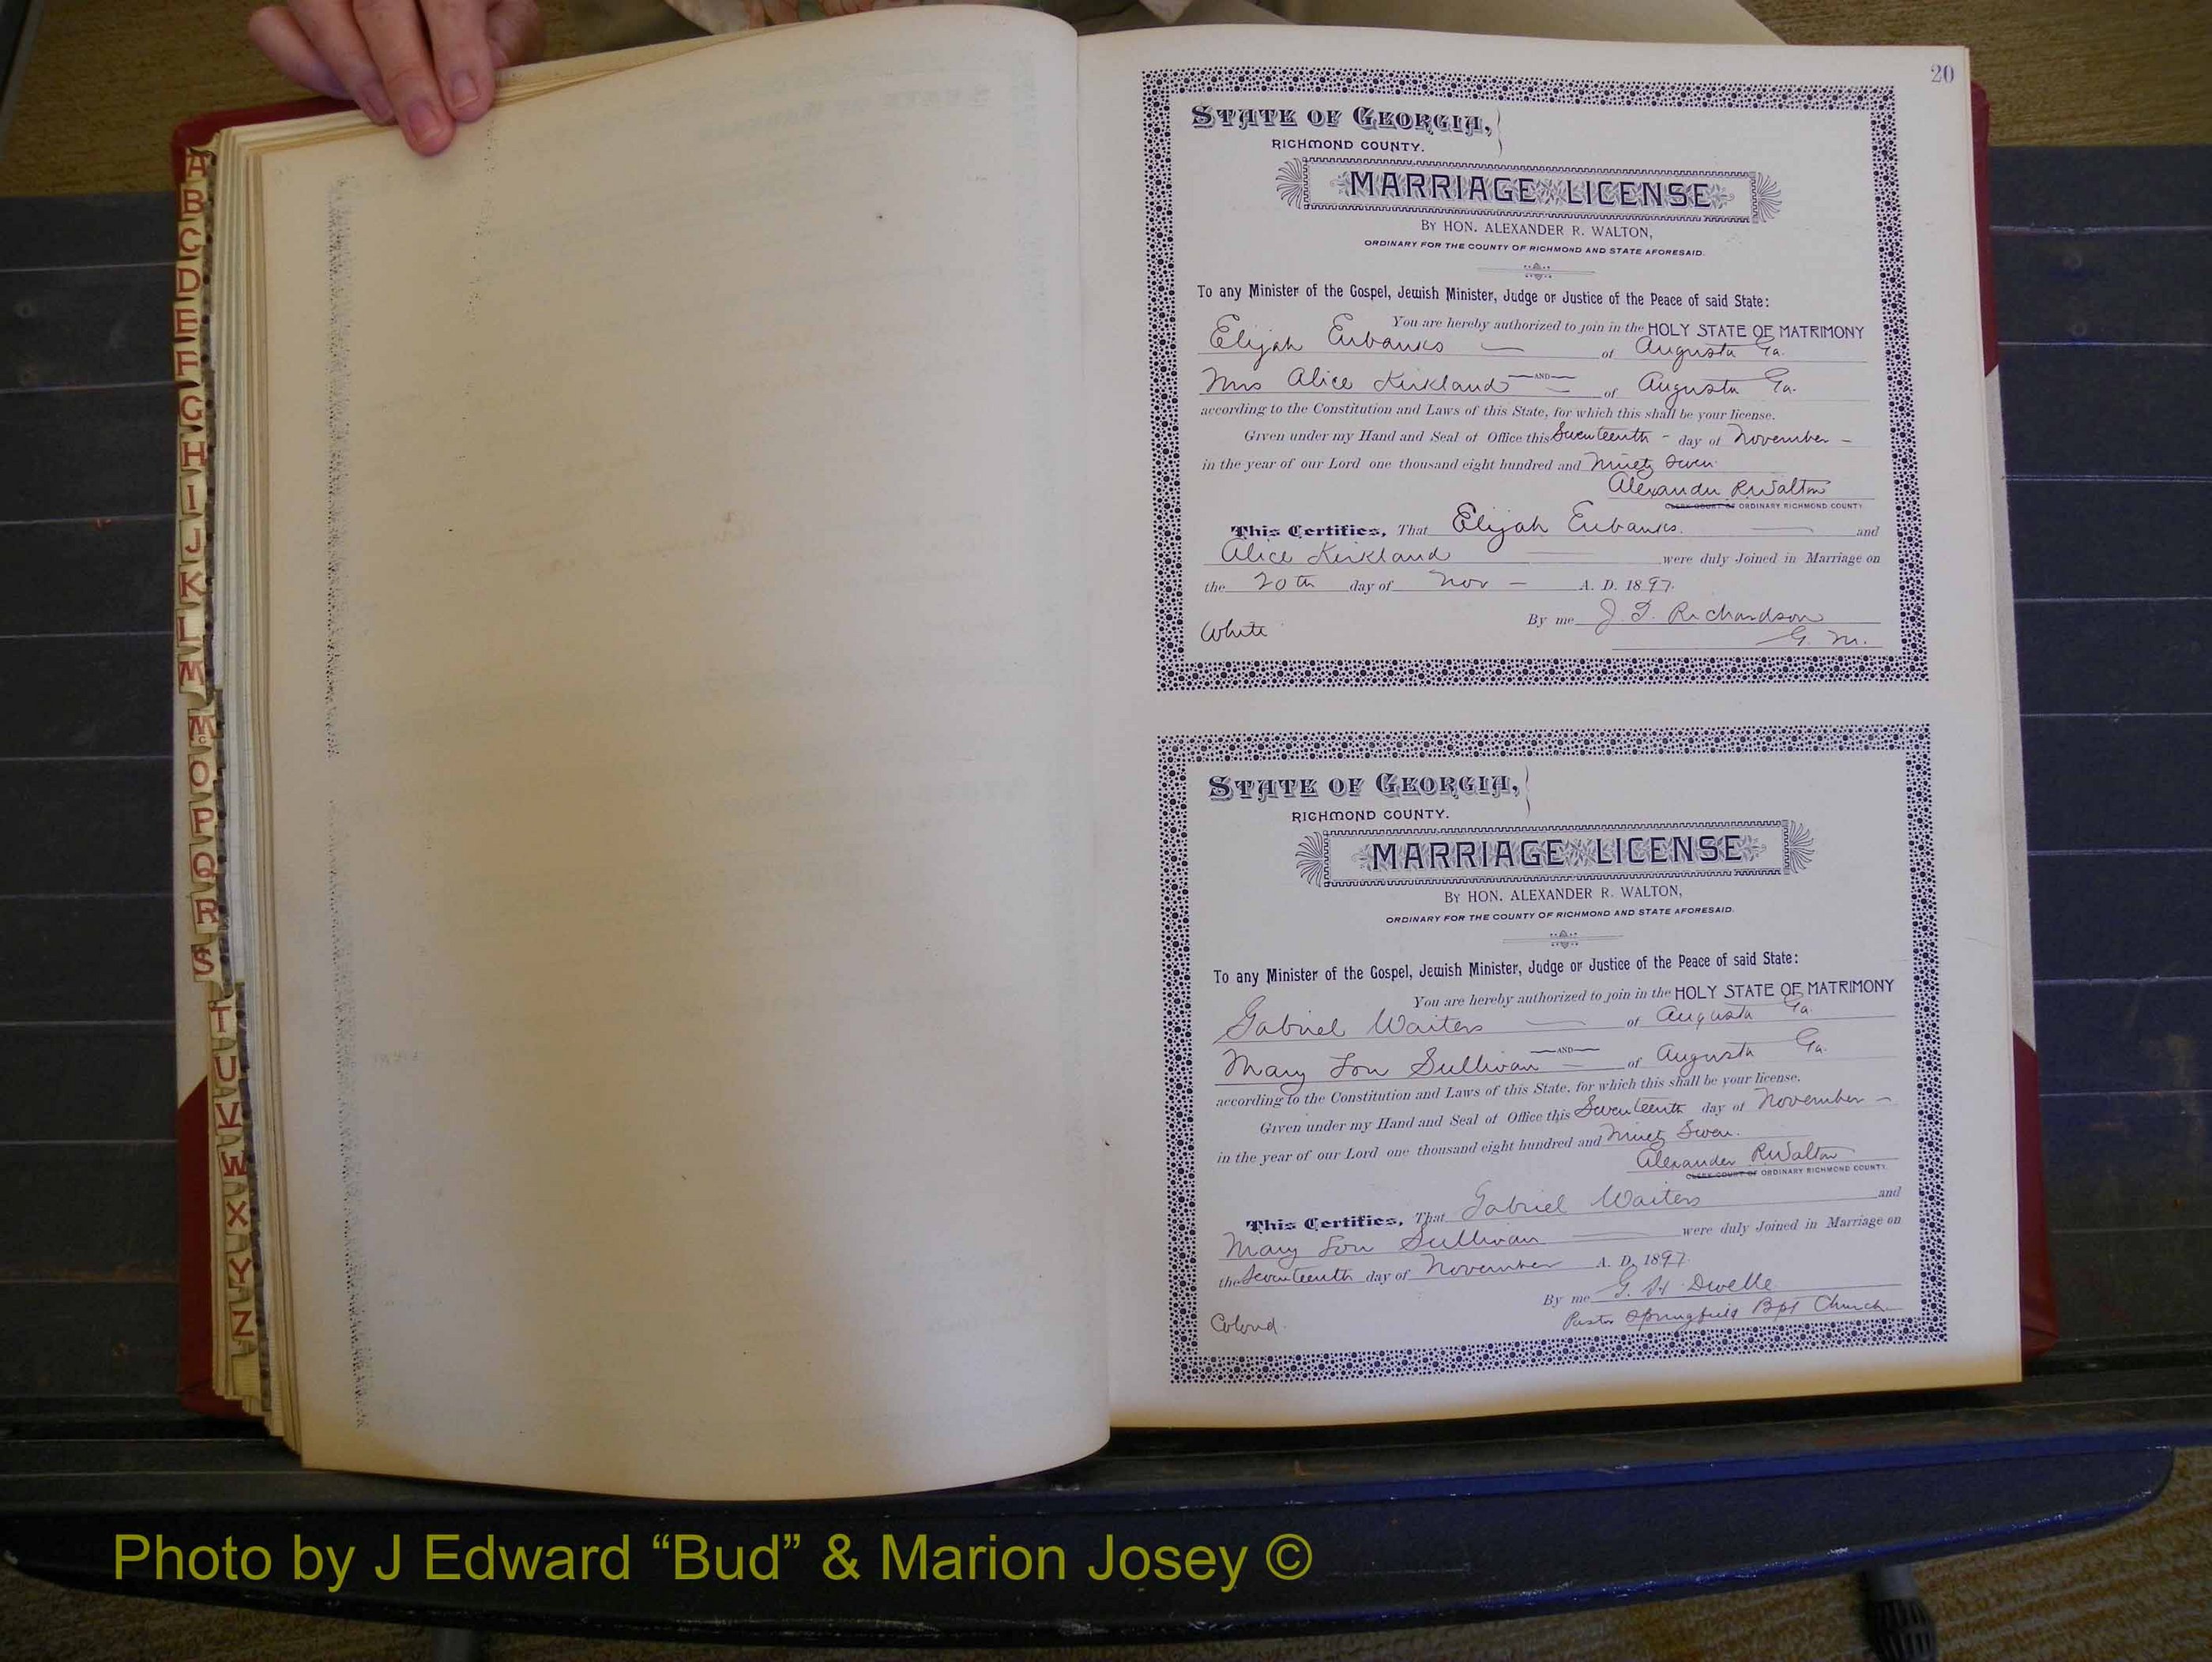 A
B
C
D
E
F
G
H
I
J
K
L
M
Mc
O
P
Q
R
S
T
U
V
W
X
Y
Z
20
STATE OF GEORGIA,
RICHMOND COUNTY.
MARRIAGE LICENSE
BY HON. ALEXANDER R. WALTON,
ORDINARY FOR THE COUNTY OF RICHMOND AND STATE AFORESAID.
To any Minister of the Gospel, Jewish Minister, Judge or Justice of the Peace of said State:
You are hereby authorized to join in the HOLY STATE OF MATRIMONY
Elijah Eubanks of Augusta Ga.
AND
Mrs Alice Kirkland of Augusta Ga.
according to the Constitution and Laws of this State, for which this shall be your license.
Given under my Hand and Seal of Office this Seventeenth - day of November -
in the year of our Lord one thousand eight hundred and Ninety Seven.
Alexander R Walton
CLERK COURT OF ORDINARY RICHMOND COUNTY.
This Certifies, That Elijah Eubanks. and
Alice Kirkland were duly Joined in Marriage on
the 20th day of Nov - A. D. 1897.
By me J. T. Richardson
White G. M.
STATE OF GEORGIA,
RICHMOND COUNTY.
MARRIAGE LICENSE
BY HON. ALEXANDER R. WALTON,
ORDINARY FOR THE COUNTY OF RICHMOND AND STATE AFORESAID.
To any Minister of the Gospel, Jewish Minister, Judge or Justice of the Peace of said State:
You are hereby authorized to join in the HOLY STATE OF MATRIMONY
Gabriel Waiters of Augusta Ga.
AND
Mary Lou Sullivan of Augusta Ga.
according to the Constitution and Laws of this State, for which this shall be your license.
Given under my Hand and Seal of Office this Seventeenth day of November -
in the year of our Lord one thousand eight hundred and Ninety Seven.
Alexander R Walton
CLERK COURT OF ORDINARY RICHMOND COUNTY.
This Certifies, That Gabriel Waiters and
Mary Lou Sullivan were duly Joined in Marriage on
the Seventeenth day of November A. D. 1897.
By me G. H. Dwelle
Colored. Pastor Springfield Bpt Church
Photo by J Edward “Bud” & Marion Josey ©